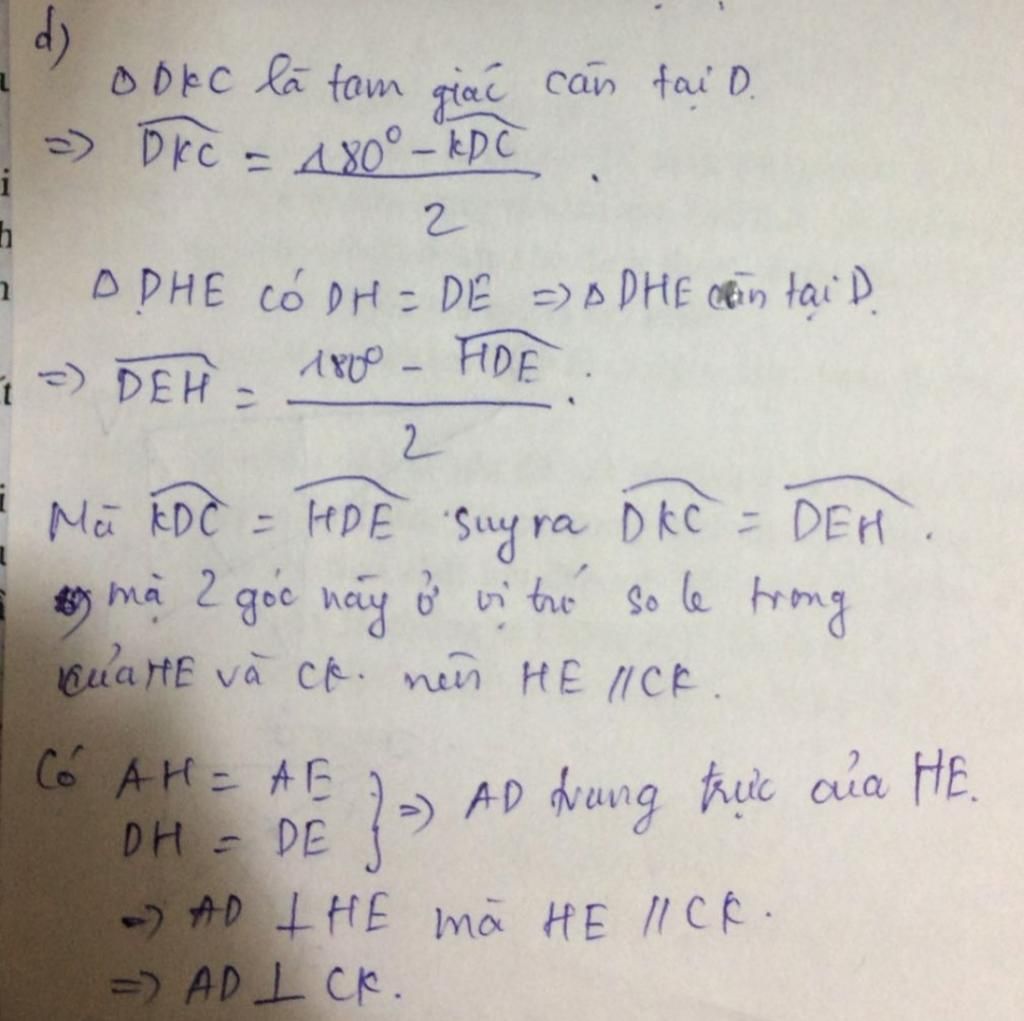 d)
Δ DKC là tam giác cân tại D.
=> \widehat{DKC} = \frac{180° - \widehat{KDC}}{2} .
Δ DHE có DH = DE => Δ DHE cân tại D.
=> \widehat{DEH} = \frac{180° - \widehat{HDE}}{2} .
Mà \widehat{KDC} = \widehat{HDE} suy ra \widehat{DKC} = \widehat{DEH} .
mà 2 góc này ở vị trí so le trong
của HE và CK. nên HE // CK.
Có AH = AE
DH = DE } => AD trung trực của HE.
=> AD ⊥ HE mà HE // CK.
=> AD ⊥ CK.